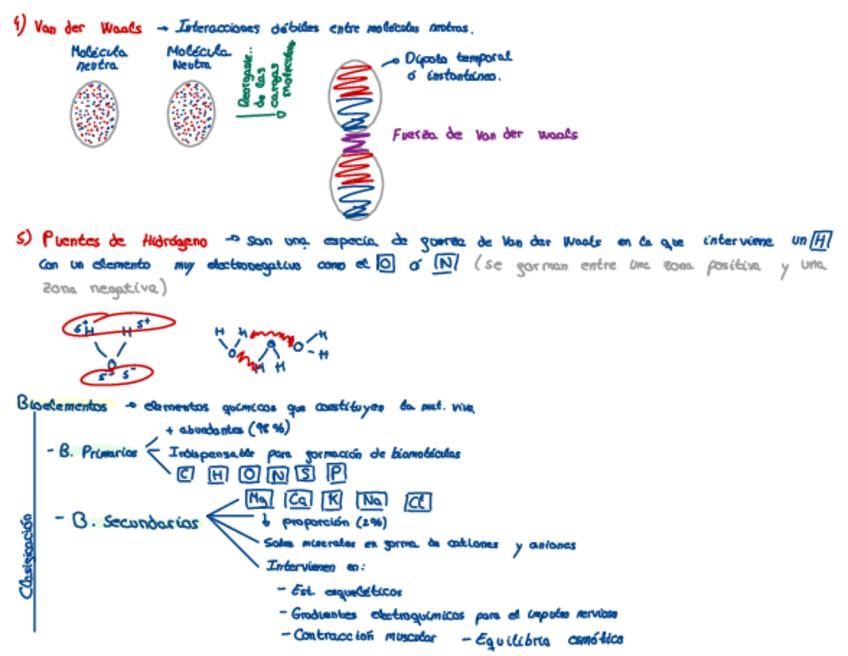 4) Van der Waals → Interacciones débiles entre moléculas neutras.
Molécula neutra
Molécula Neutra
Reorganiz. de las cargas moleculas
Dipolo temporal ó instantáneo.
Fuerza de Van der Waals
5) Puentes de Hidrógeno → son una especia de fuerza de Van der Waals en la que interviene un H
con un elemento muy electronegativo como el O ó N (se forman entre una zona positiva y una
zona negativa)
δ+ H H δ+
O
δ- δ-
H H O H H O H H
Bioelementos → elementos químicos que constituyen la mat. viva
+ abundantes (98%)
- B. Primarios
Indispensable para formación de biomoléculas
C H O N S P
Mg Ca K Na Cl
- B. Secundarios
↓ proporción (2%)
Sales minerales en forma de cationes y aniones
Intervienen en:
- Est. esqueléticos
- Gradientes electroquímicos para el impulso nervioso
- Contracción muscular - Equilibrio osmótico
Clasificación